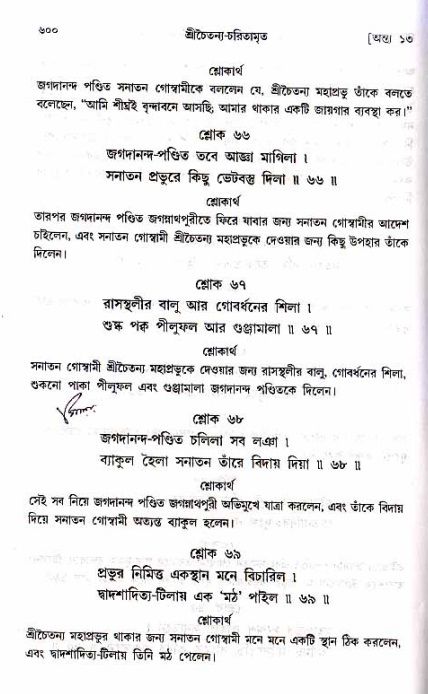 ৬০০
শ্রীচৈতন্য-চরিতামৃত
[অন্ত্য ১৩
শ্লোকার্থ
জগদানন্দ পণ্ডিত সনাতন গোস্বামীকে বললেন যে, শ্রীচৈতন্য মহাপ্রভু তাঁকে বলতে
বলেছেন, “আমি শীঘ্রই বৃন্দাবনে আসছি; আমার থাকার একটি জায়গার ব্যবস্থা কর।”
শ্লোক ৬৬
জগদানন্দ-পণ্ডিত তবে আজ্ঞা মাগিলা ।
সনাতন প্রভুরে কিছু ভেটবস্তু দিলা ॥ ৬৬ ॥
শ্লোকার্থ
তারপর জগদানন্দ পণ্ডিত জগন্নাথপুরীতে ফিরে যাবার জন্য সনাতন গোস্বামীর আদেশ
চাইলেন, এবং সনাতন গোস্বামী শ্রীচৈতন্য মহাপ্রভুকে দেওয়ার জন্য কিছু উপহার তাঁকে
দিলেন।
শ্লোক ৬৭
রাসস্থলীর বালু আর গোবর্ধনের শিলা ।
শুষ্ক পক্ব পীলুফল আর গুঞ্জামালা ॥ ৬৭ ॥
শ্লোকার্থ
সনাতন গোস্বামী শ্রীচৈতন্য মহাপ্রভুকে দেওয়ার জন্য রাসস্থলীর বালু, গোবর্ধনের শিলা,
শুকনো পাকা পীলুফল এবং গুঞ্জামালা জগদানন্দ পণ্ডিতকে দিলেন।
শ্লোক ৬৮
জগদানন্দ-পণ্ডিত চলিলা সব লঞা ।
ব্যাকুল হৈলা সনাতন তাঁরে বিদায় দিয়া ॥ ৬৮ ॥
শ্লোকার্থ
সেই সব নিয়ে জগদানন্দ পণ্ডিত জগন্নাথপুরী অভিমুখে যাত্রা করলেন, এবং তাঁকে বিদায়
দিয়ে সনাতন গোস্বামী অত্যন্ত ব্যাকুল হলেন।
শ্লোক ৬৯
প্রভুর নিমিত্ত একস্থান মনে বিচারিল ।
দ্বাদশাদিত্য-টিলায় এক ‘মঠ’ পাইল ॥ ৬৯ ॥
শ্লোকার্থ
শ্রীচৈতন্য মহাপ্রভুর থাকার জন্য সনাতন গোস্বামী মনে মনে একটি স্থান ঠিক করলেন,
এবং দ্বাদশাদিত্য-টিলায় তিনি মঠ পেলেন।